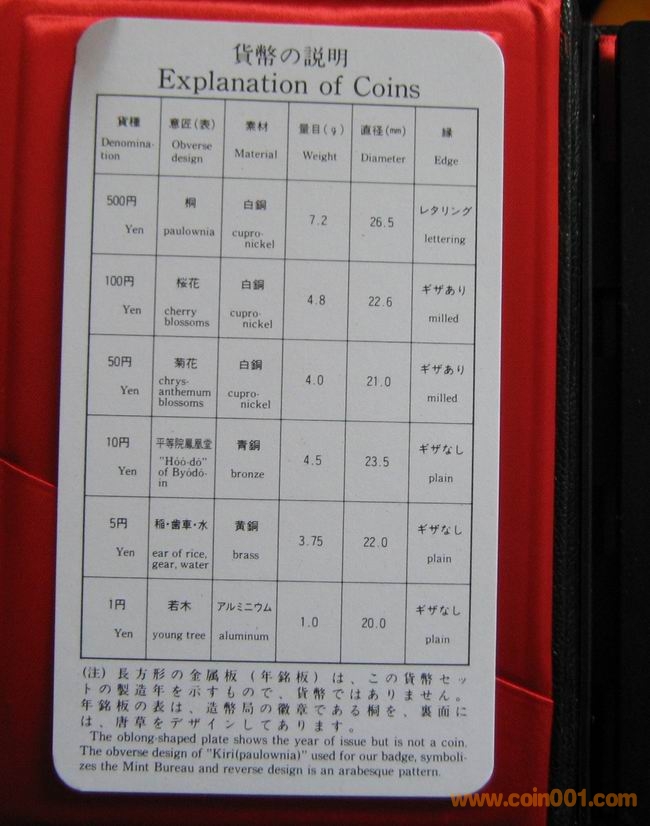 貨幣の説明
Explanation of Coins
貨種 意匠(表) 素材 量目(g) 直径(mm) 縁
Denomina-
tion Obverse
design Material Weight Diameter Edge
500円 桐 白銅 7.2 26.5 レタリング
Yen paulownia cupro-
nickel lettering
100円 桜花 白銅 4.8 22.6 ギザあり
Yen cherry
blossoms cupro-
nickel milled
50円 菊花 白銅 4.0 21.0 ギザあり
Yen chrys-
anthemum
blossoms cupro-
nickel milled
10円 平等院鳳凰堂 青銅 4.5 23.5 ギザなし
Yen "Hóó-dó"
of Byódó-
in bronze plain
5円 稲・歯車・水 黄銅 3.75 22.0 ギザなし
Yen ear of rice,
gear, water brass plain
1円 若木 アルミニウム 1.0 20.0 ギザなし
Yen young tree aluminum plain
(注) 長方形の金属板(年銘板)は、この貨幣セッ
トの製造年を示すもので、貨幣ではありません。
年銘板の表は、造幣局の徽章である桐を、裏面に
は、唐草をデザインしてあります。
The oblong-shaped plate shows the year of issue but is not a coin.
The obverse design of "Kiri(paulownia)" used for our badge, symboli-
zes the Mint Bureau and reverse design is an arabesque pattern.
www.coin001.com